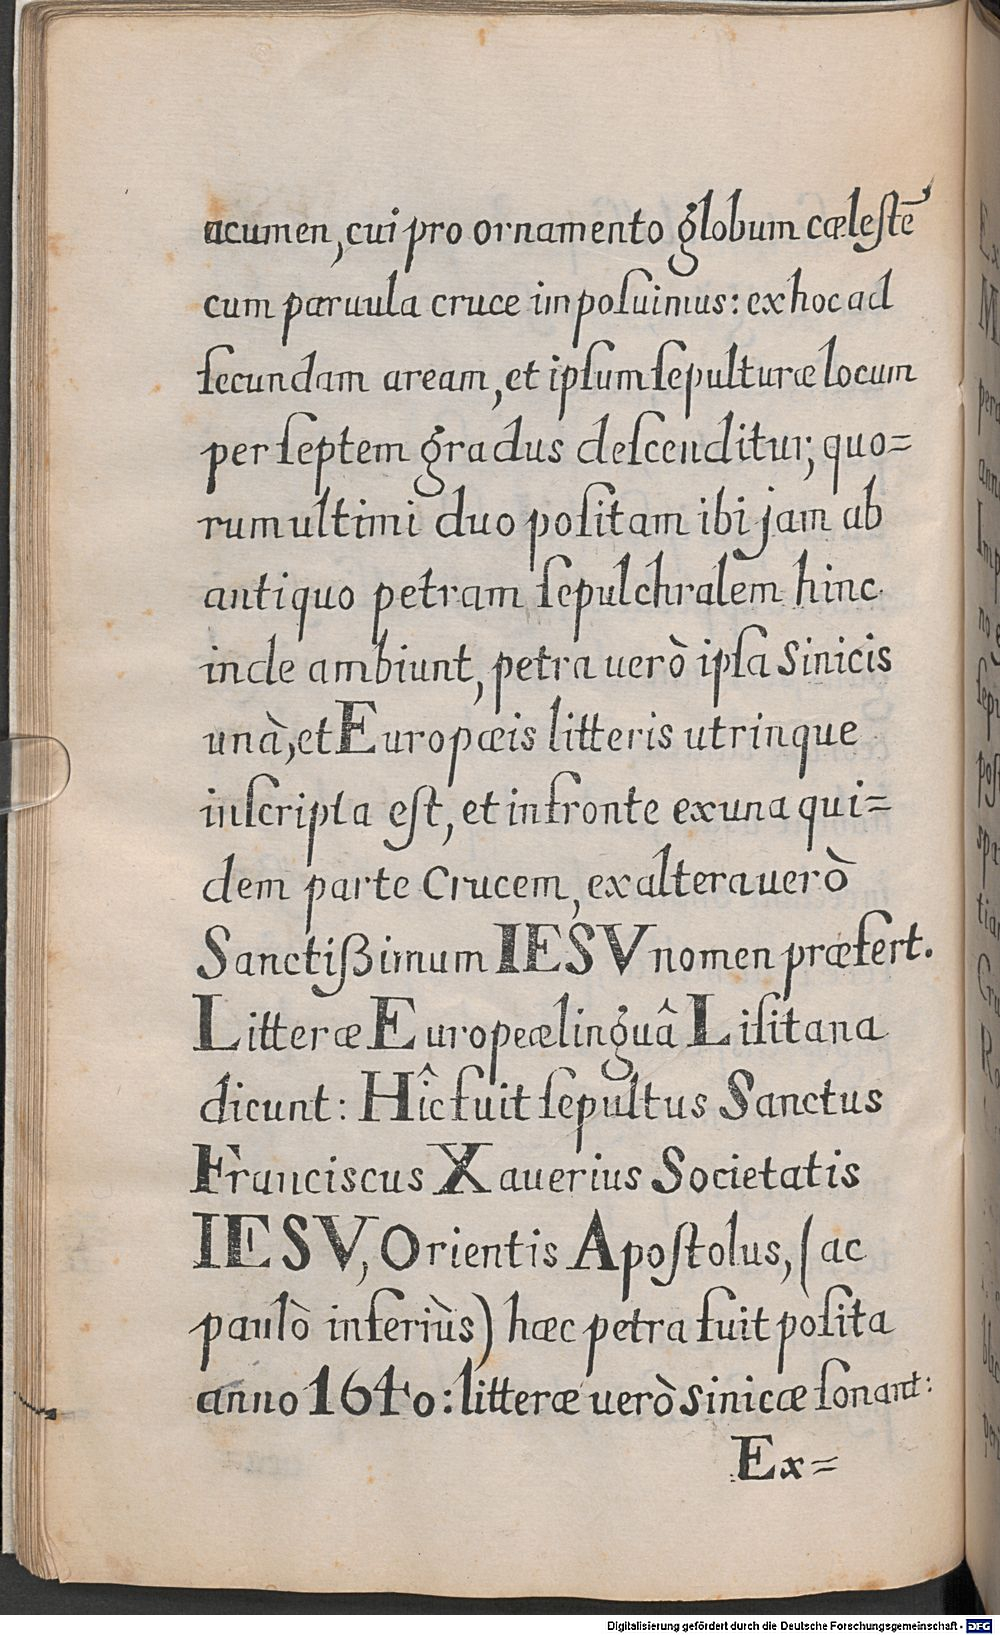 acumen, cui pro ornamento globum cælestē
cum paruula cruce imposuimus: ex hoc ad
ſecundam aream, et ipſum ſepulturæ locum
per ſeptem gradus deſcenditur, quo=
rum ultimi duo poſitam ibi jam ab
antiquo petram ſepulchralem hinc
inde ambiunt, petra uerò ipſa Sinicis
unà, et Europæis litteris utrinque
inſcripta eſt, et in fronte ex una qui=
dem parte Crucem, ex altera uerò
Sanctißimum IESV nomen præfert.
Litteræ Europeæ linguâ Liſitana
dicunt: Hîc fuit ſepultus Sanctus
Franciscus Xauerius Societatis
IESV, Orientis Apoſtolus, (ac
paulò inferiùs) hæc petra fuit poſita
anno 1640: litteræ uerò Sinicæ ſonant:
Ex=
Digitalisierung gefördert durch die Deutsche Forschungsgemeinschaft - DFG